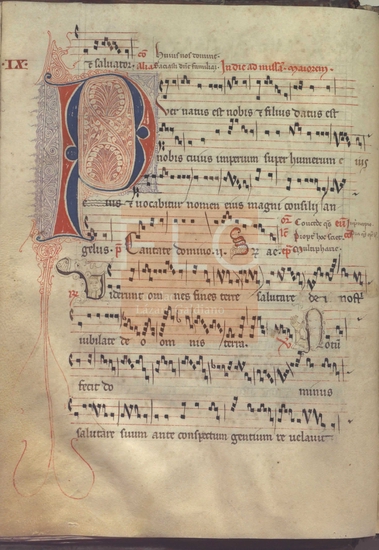 ·IX·
& saluator. co Huius nos domine
alia Sacrificiis dne familiari. In die ad missa maiorem
Puer natus est nobis & filius datus est
nobis cuius imperium super humerum e ius
& uocabitur nomen eius magni consilii an
gelus. Cantate domino. Concede qs
Uiderunt om nes fines terre salutare de i nostri
iubilate de o om nis terra. Notu
fecit do minus
salutare suum ante conspectum gentium re uelauit